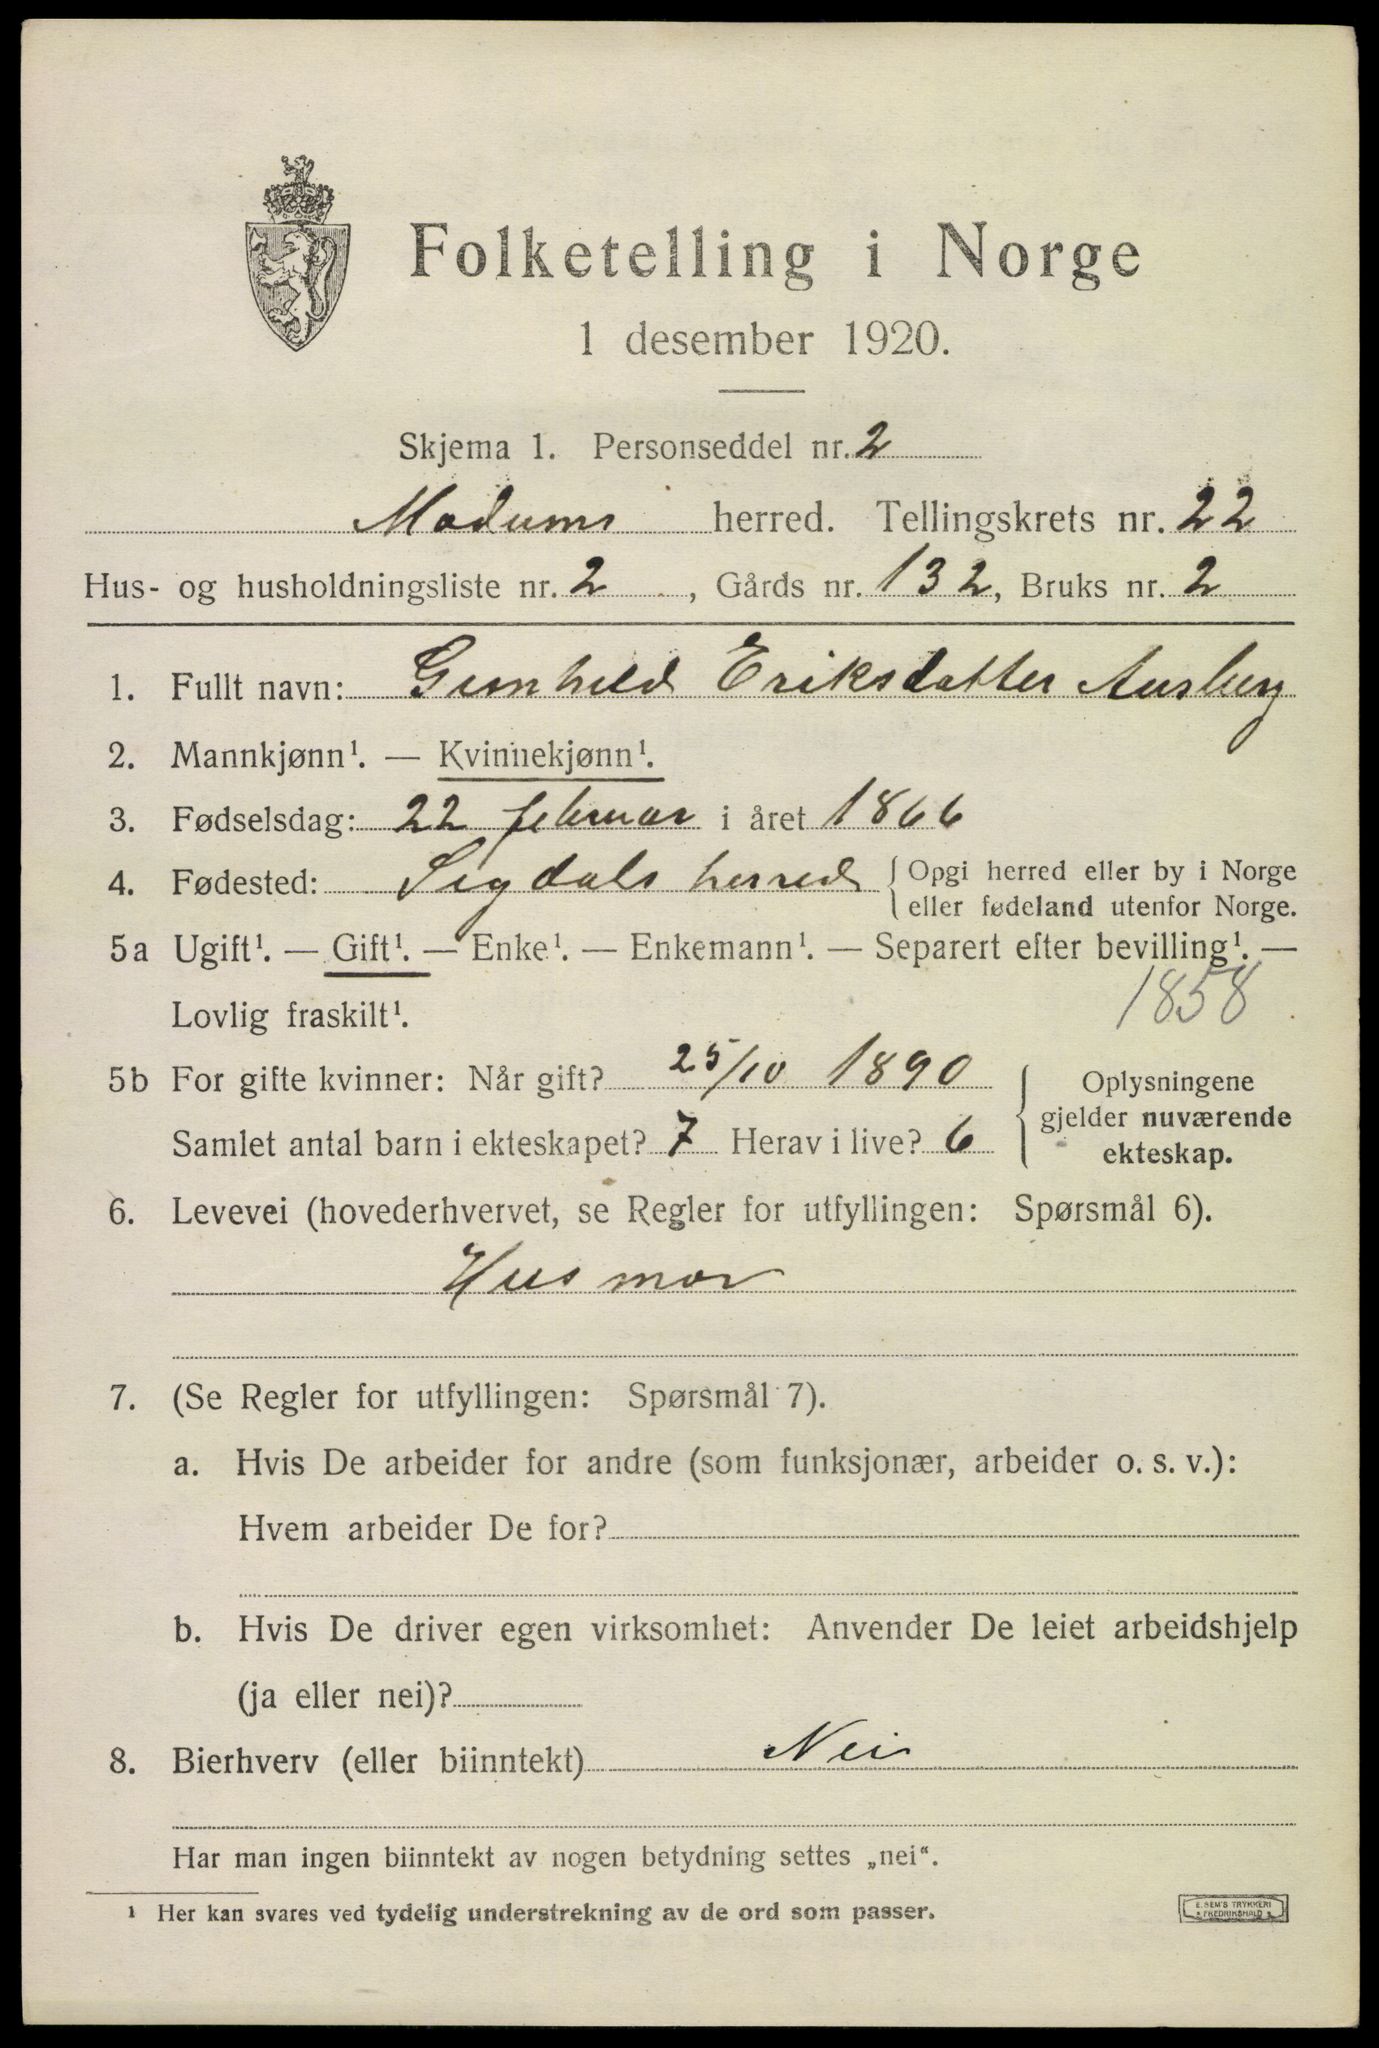 Folketelling i Norge
1 desember 1920.
Skjema 1. Personseddel nr. 2
Modums herred. Tellingskrets nr. 22
Hus- og husholdningsliste nr. 2, Gårds nr. 132, Bruks nr. 2
1. Fullt navn: Gunhild Eriksdatter
2. Mannkjønn¹. — Kvinnekjønn¹.
3. Fødselsdag: 22 februar i året 1866
4. Fødested: Sigdals herred { Opgi herred eller by i Norge
eller fødeland utenfor Norge.
5a Ugift¹. — Gift¹. — Enke¹. — Enkemann¹. — Separert efter bevilling¹. —
Lovlig fraskilt¹. 1858
5b For gifte kvinner: Når gift? 25/10 1890 { Oplysningene
gjelder nuværende
Samlet antal barn i ekteskapet? 7 Herav i live? 6 ekteskap.
6. Levevei (hovederhvervet, se Regler for utfyllingen: Spørsmål 6).
Husmor
7. (Se Regler for utfyllingen: Spørsmål 7).
a. Hvis De arbeider for andre (som funksjonær, arbeider o. s. v.):
Hvem arbeider De for?
b. Hvis De driver egen virksomhet: Anvender De leiet arbeidshjelp
(ja eller nei)?
8. Bierhverv (eller biinntekt) Nei
Har man ingen biinntekt av nogen betydning settes „nei“.
¹ Her kan svares ved tydelig understrekning av de ord som passer.
E. SEM'S TRYKKERI
FREDRIKSHALD